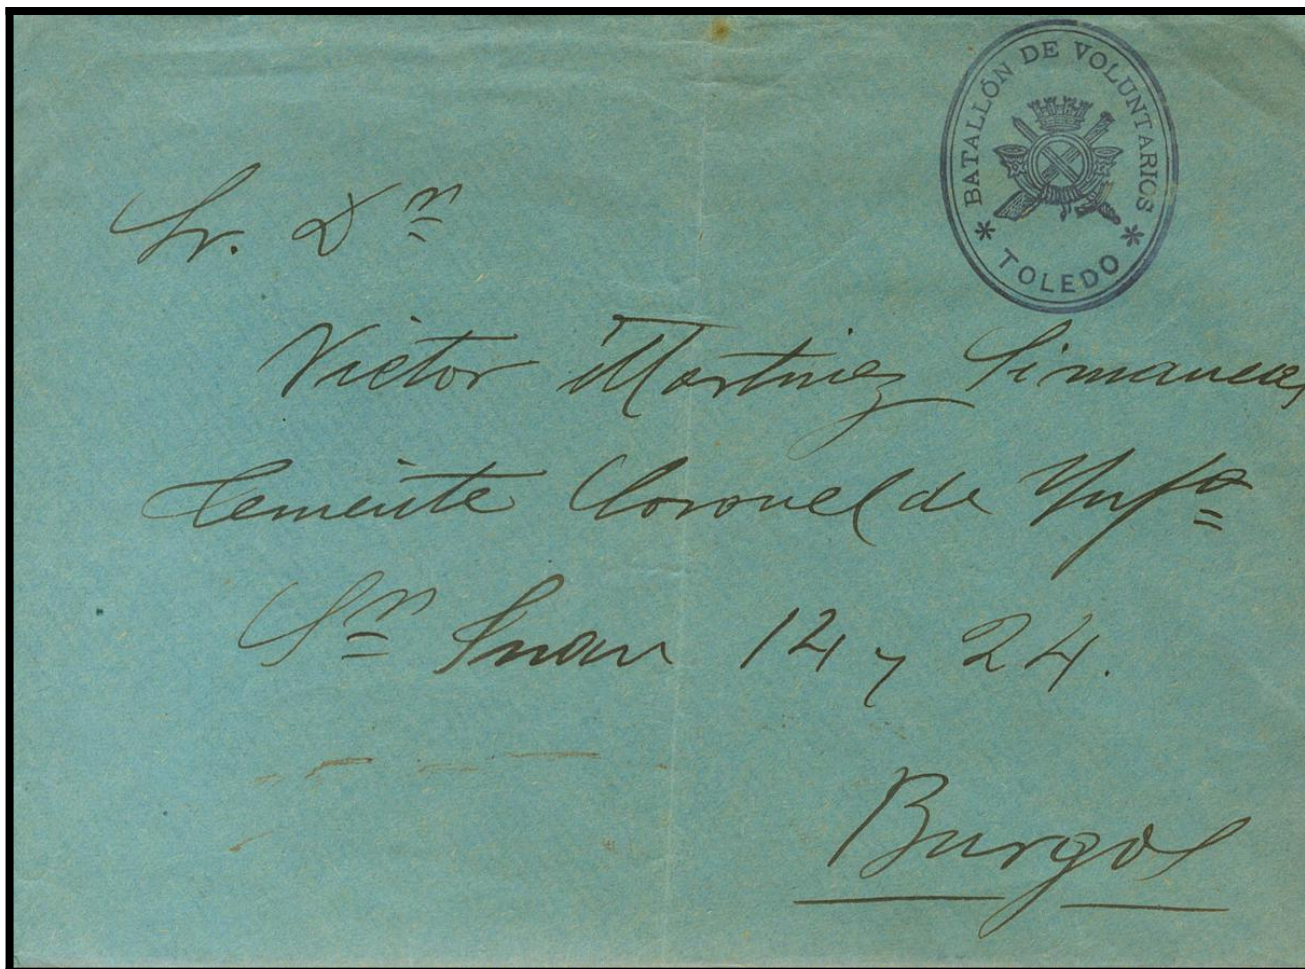 BATALLÓN DE VOLUNTARIOS
* TOLEDO *
Sr. Dn
Victor Martinez Simancas
Teniente Coronel de Ynfa
Sn Juan 14 y 24.
Burgos